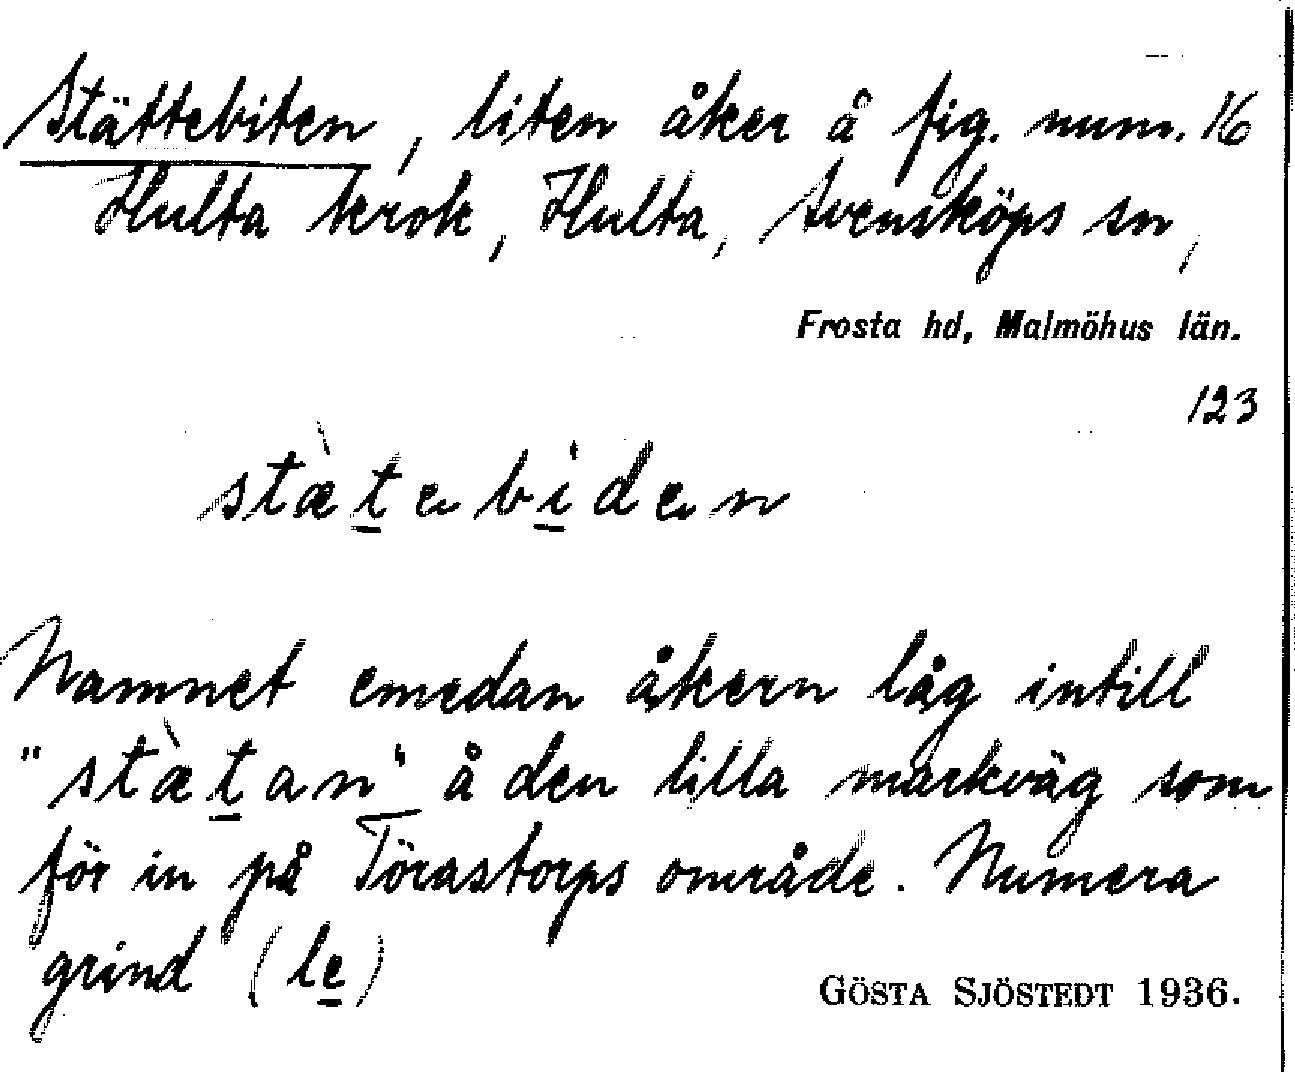 Stättebiten, liten åker å fig. num. 16
Hulta krok, Hulta, Svensköps sn,
Frosta hd, Malmöhus län.
123
stæ̀t̲e bi̲den
Namnet emedan åkern låg intill
"stæ̀t̲an" å den lilla markväg som
för in på Törastorps område. Numera
grind (le̲)
GÖSTA SJÖSTEDT 1936.